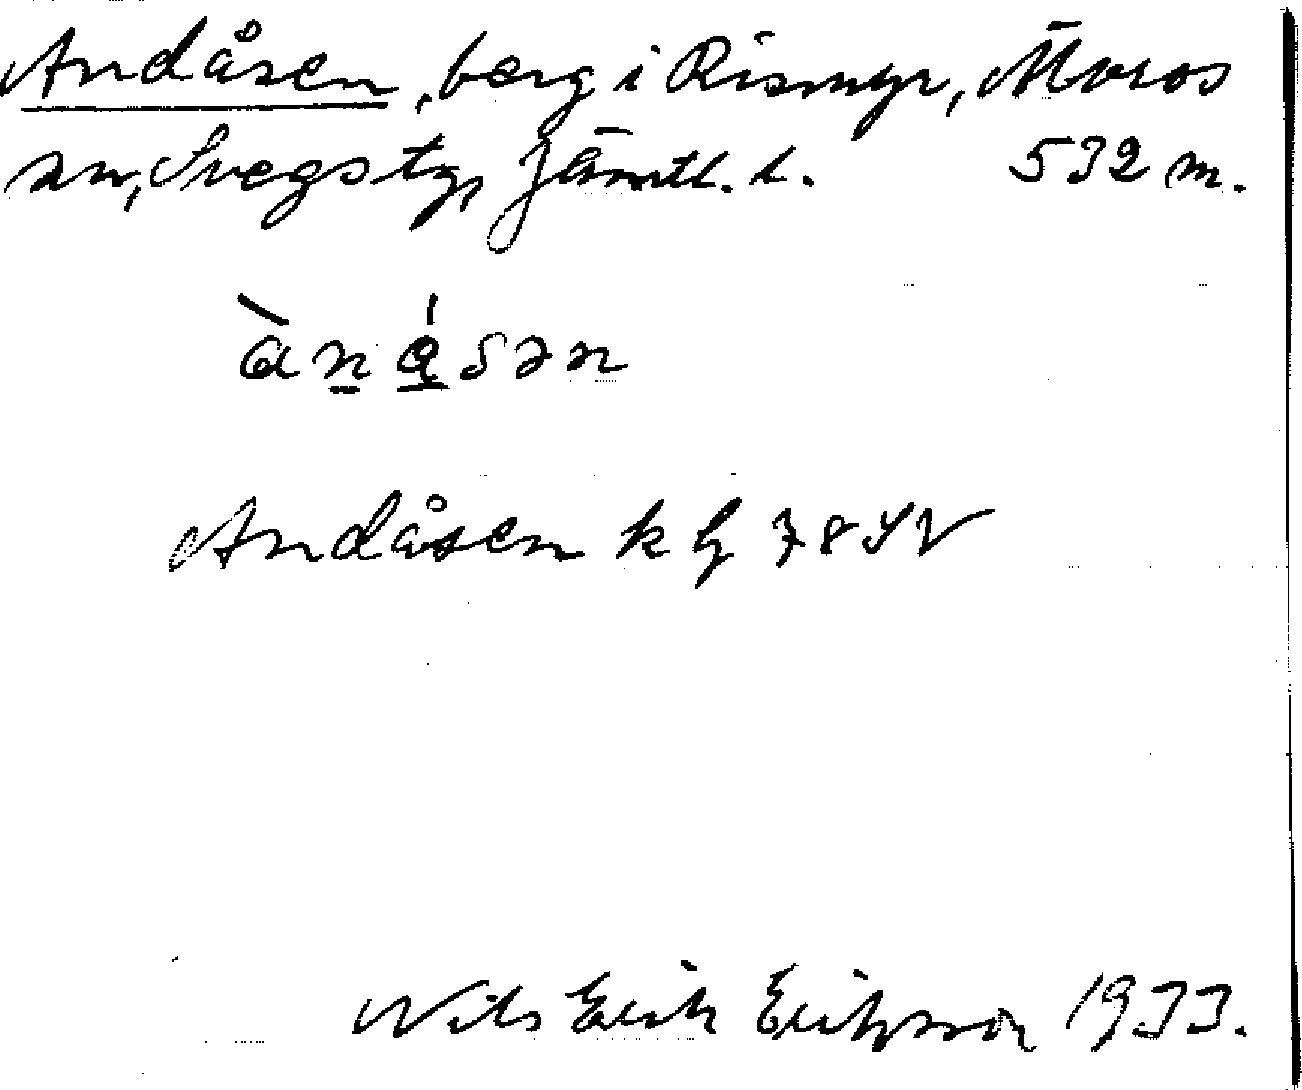 Andåsen, berg i Rismyr, Älvros
sn, Svegs tg, Jämtl. l. 532 m.
ànåsən
Andåsen k bl 78 SV
Nils Erik Eriksson 1933.